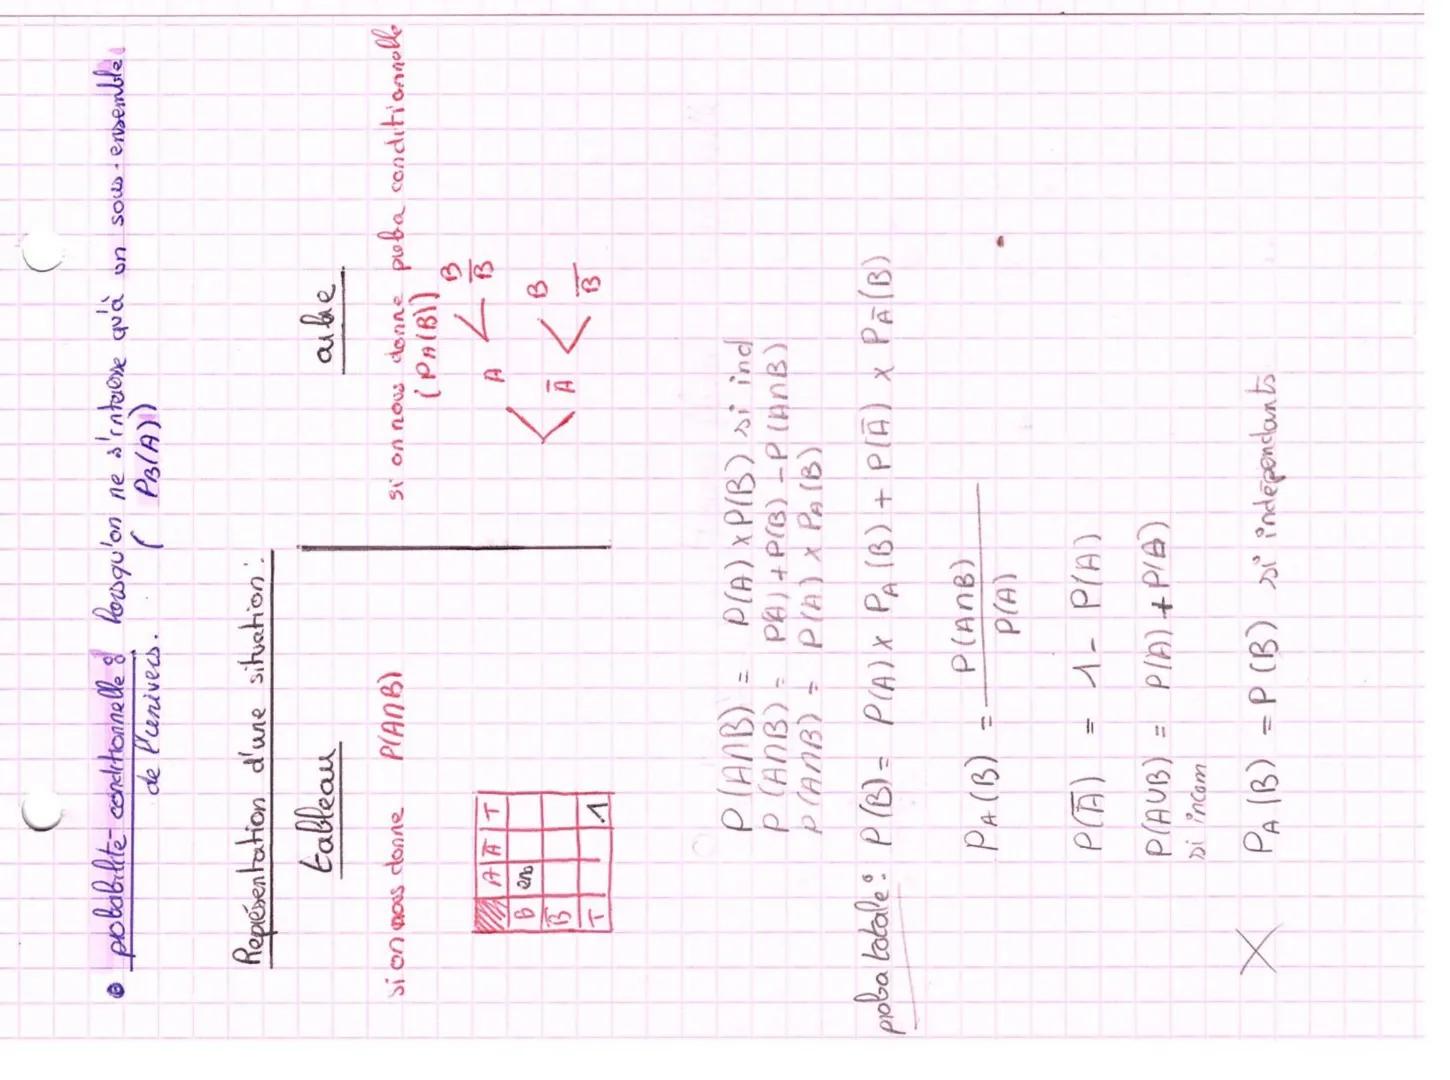 • probabilité conditionnelle : lorsqu'on ne s'intéresse qu'à un sous-ensemble
de l'univers. ( PB(A))
Représentation d'une situation :
tableau
arbre
si on nous donne P(A∩B)
A Ā T
B
B̄
T 1
si on nous donne proba conditionnelle
(PA(B))
A B
B̄
Ā B
B̄
P(A∩B) = P(A) x P(B) si ind
P(A∩B) = P(A) + P(B) - P(A∩B)
P(A∩B) = P(A) x PA(B)
proba totale : P(B) = P(A) x PA(B) + P(Ā) x PĀ(B)
PA(B) = P(A∩B)
P(A)
P(Ā) = 1 - P(A)
P(A∪B) = P(A) + P(B)
si incom
X PA(B) = P(B) si indépendants